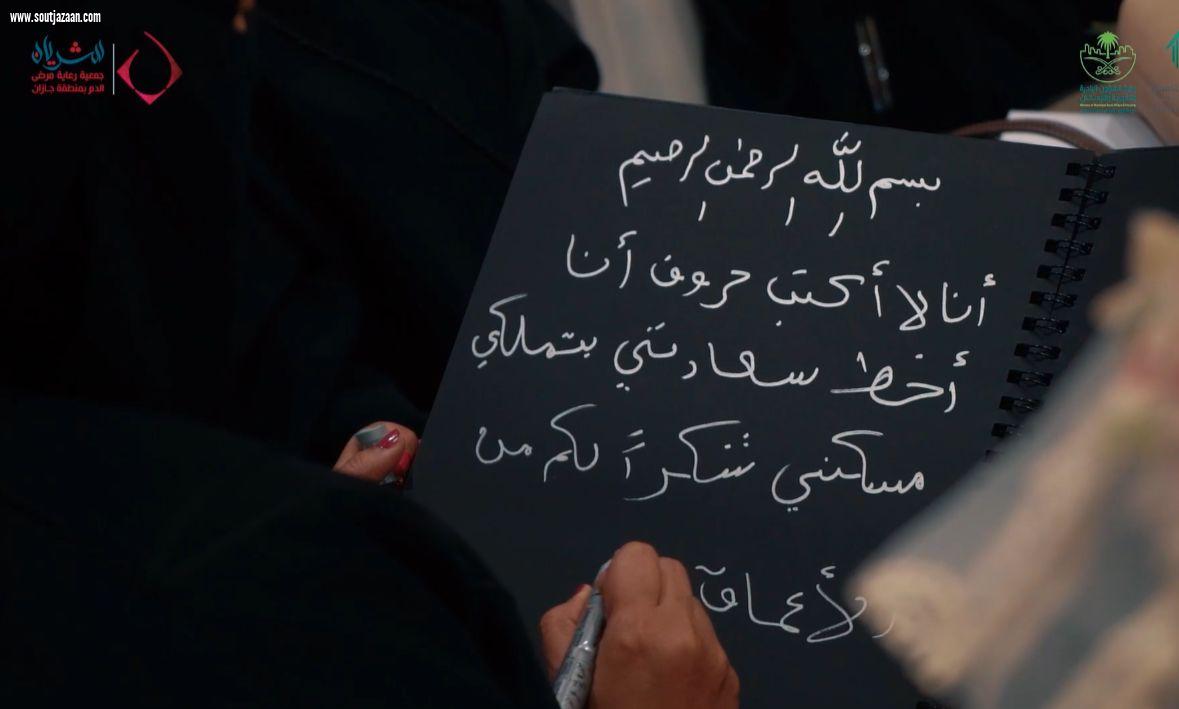 www.soutjazaan.com
الشريان
جمعية رعاية مرضى
الدم بمنطقة جازان
بسم الله الرحمن الرحيم
أنا لا أكتب حروف أنا
أخط سعادتي بتملكي
مسكني شكراً لكم من
الأعماق